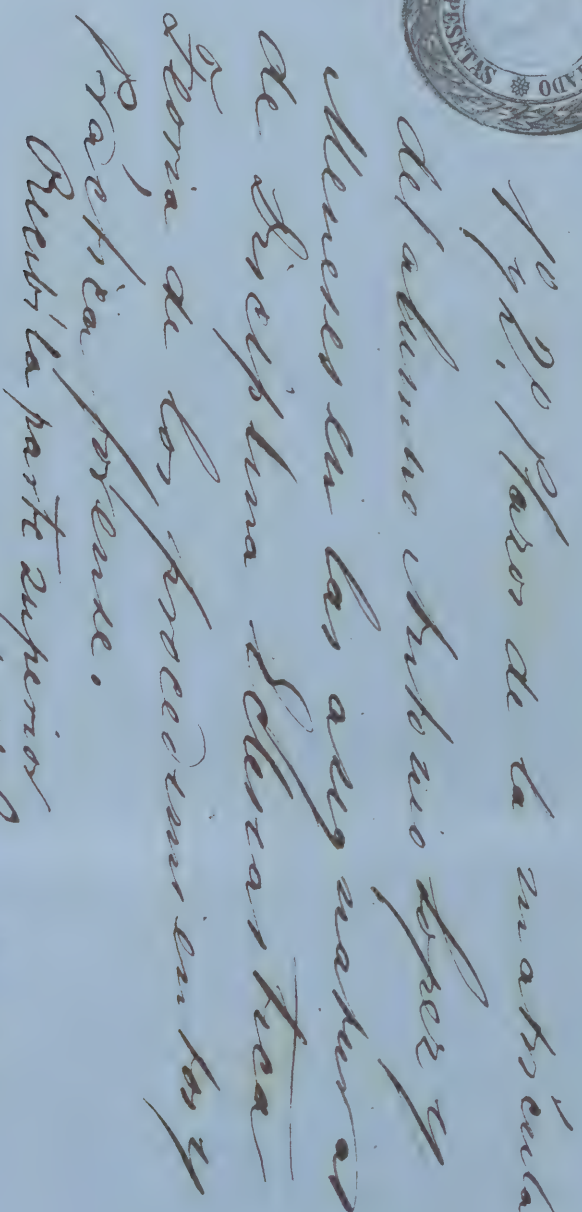 PESETAS ❋ ADO
1º y 2º Plazos de la matrícula
del alumno Antonio y
Meneses en las asignaturas
de Disciplina Eclesiastica
Teoria de los procedimientos y
Práctica forense.
Recibí la parte superior